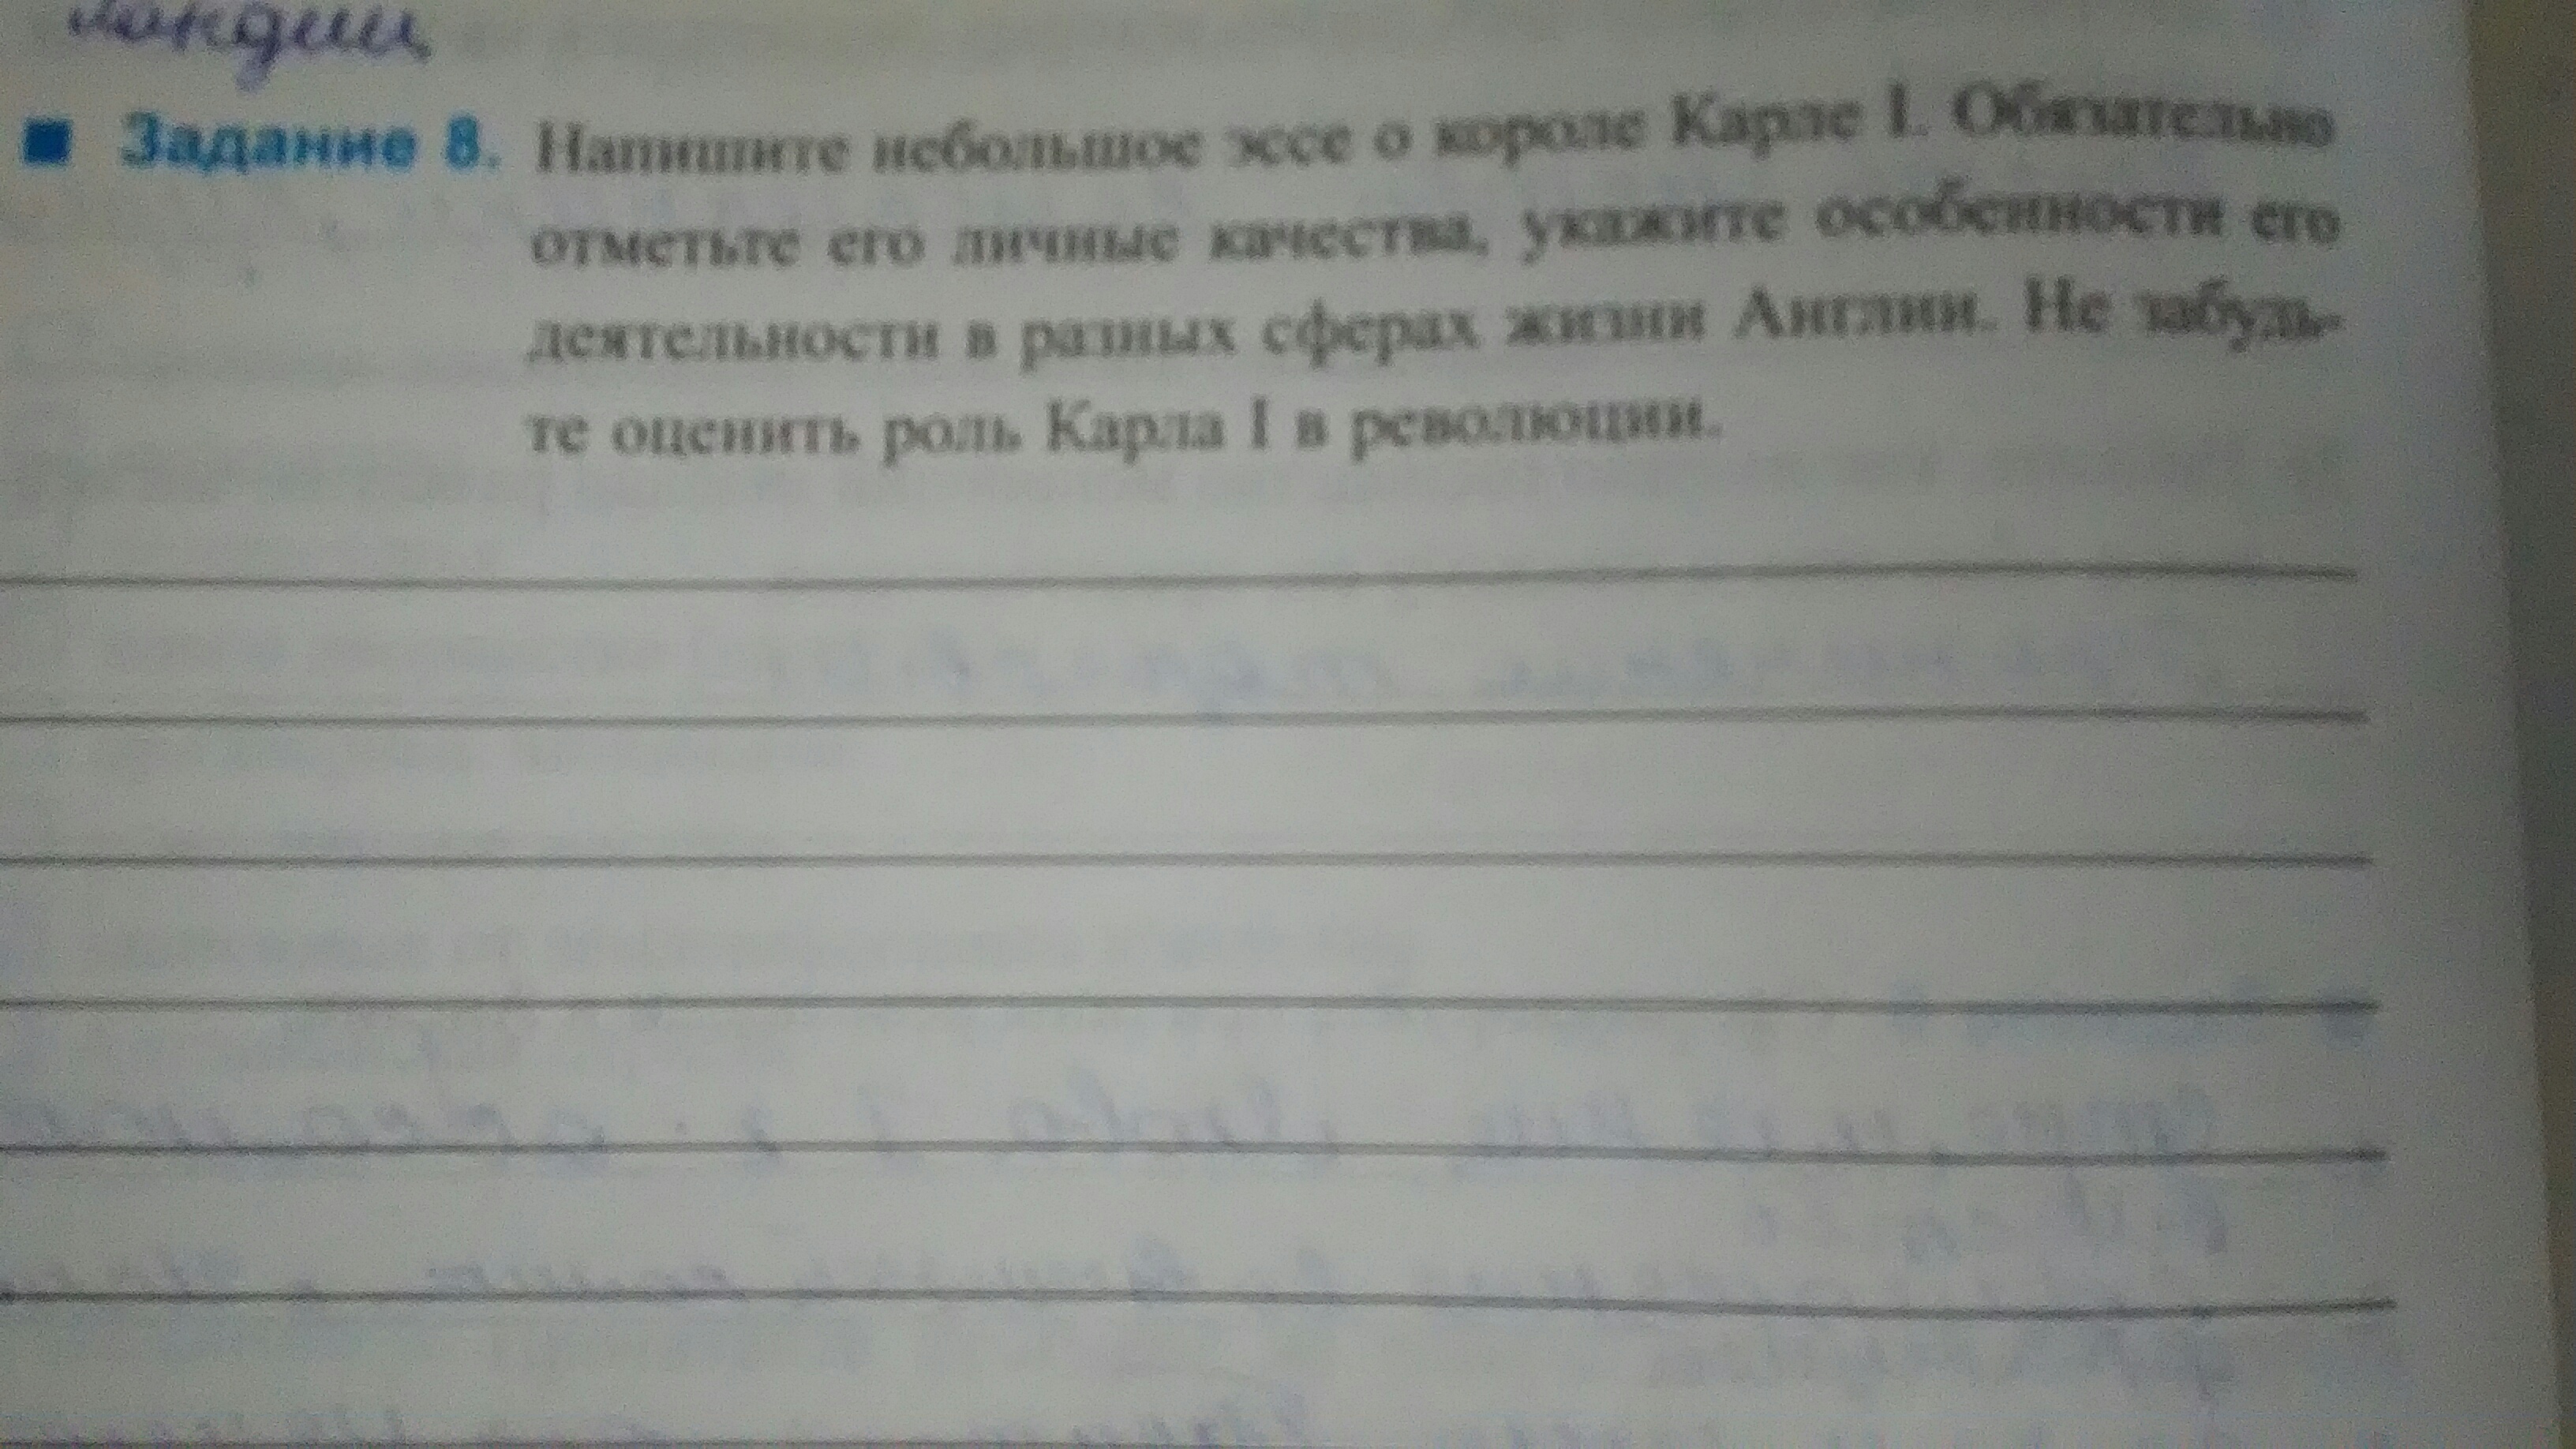 ■ Задание 8. Напишите небольшое эссе о короле Карле I. Обязательно
отметьте его личные качества, укажите особенности его
деятельности в разных сферах жизни Англии. Не забудь-
те оценить роль Карла I в революции.